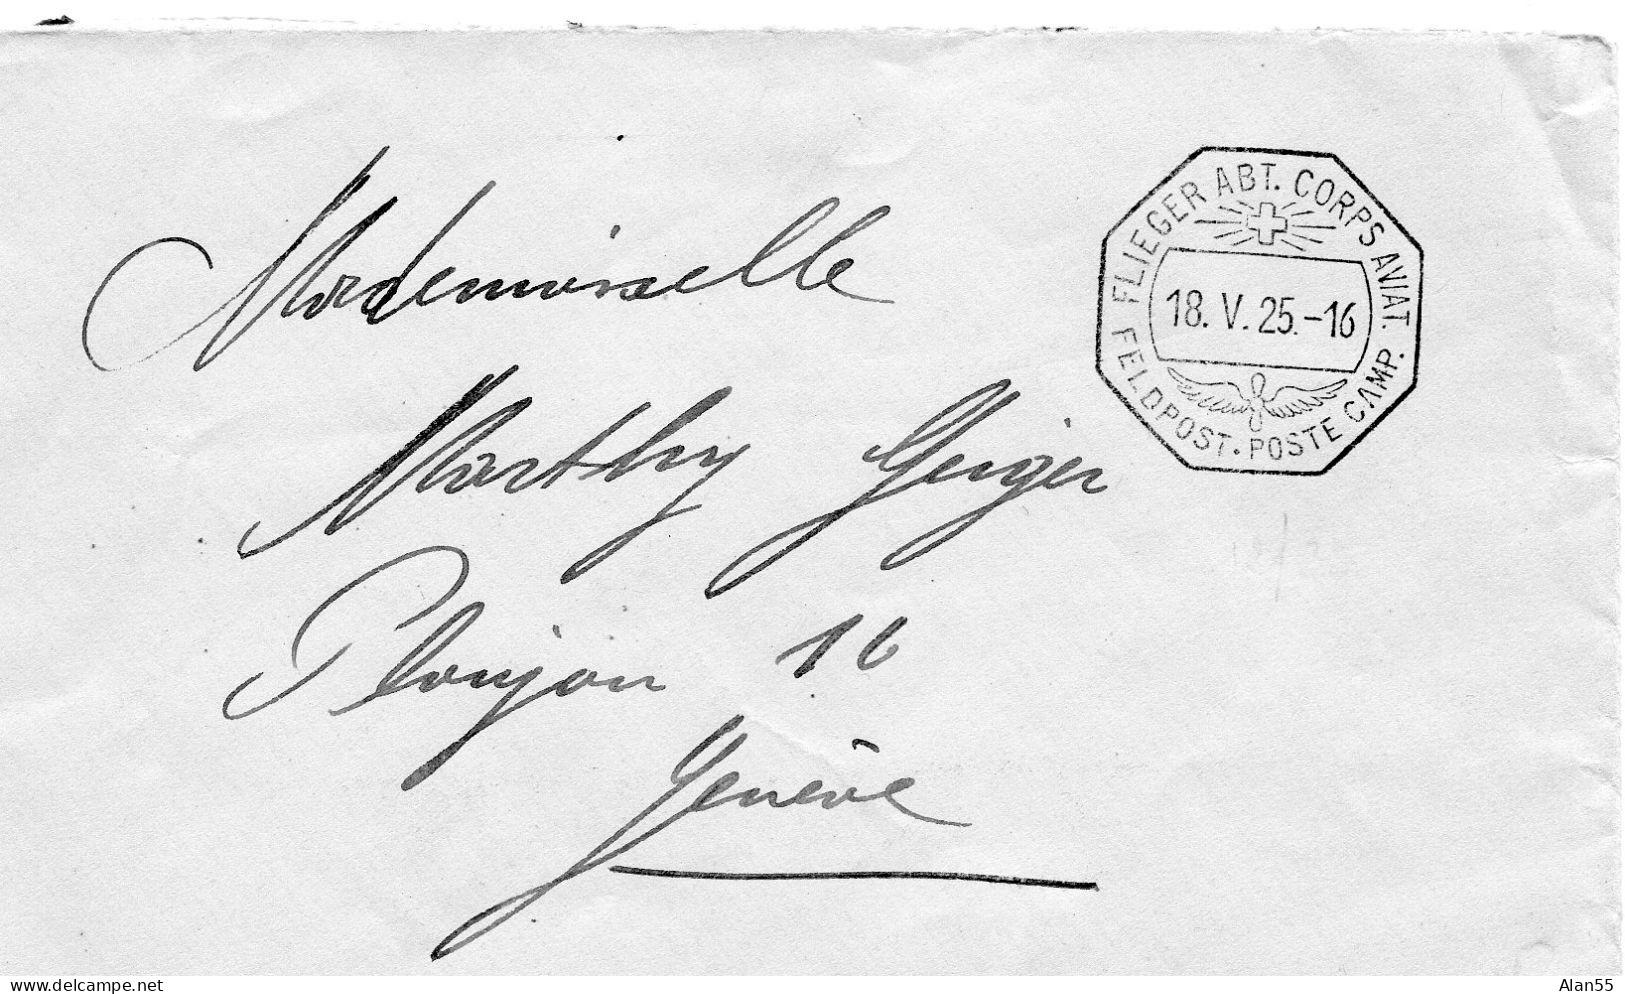 Mademoiselle
Marthy Geiger
Plonjon 16
Genève
FLIEGER ABT. CORPS AVIAT.
18. V. 25.-16
FELDPOST. POSTE CAMP.
delcampe.net
Alan55